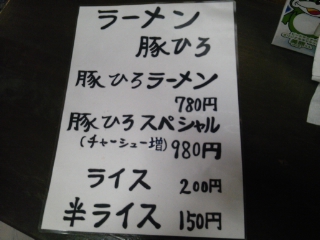 ラーメン
豚ひろ
豚ひろラーメン
780円
豚ひろスペシャル
(チャーシュー増) 980円
ライス 200円
半ライス 150円